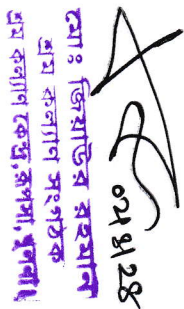 ০২৪৪২৪
মোঃ জিয়াউর রহমান
শ্রম কল্যাণ সংগঠক
শ্রম কল্যাণ কেন্দ্র, রূপসা, খুলনা।